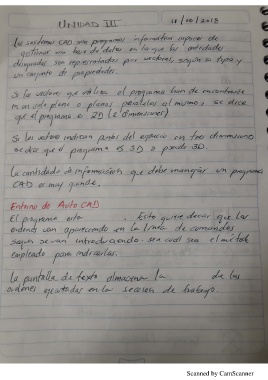 UNIDAD III 18/10/2018
Los sistemas CAD son programas informatico capaces de
gestionar una base de datos en la que las entidades
dibujadas son representadas por vectores, según su tipo y
un conjunto de propiedades.
Si los vectores que utiliza el programa han de encontrarse
en un solo plano o planos paralelos al mismo, se dice
que el programa es 2D (2 dimensiones)
Si los vectores indican puntos del espacio en tres dimensiones
se dice que el programa es 3D o pseudo 3D.
La cantidad de información que debe manejar un programa
CAD es muy grande.
Entorno de Auto CAD
El programa esta . Esto quiere decir que las
ordenes van apareciendo en la linea de comandos
segun se van introduciendo, sea cual sea el metodo
empleado para indicarlas.
La pantalla de texto almacena la de las
ordenes ejecutadas en la sesion de trabajo.
Scanned by CamScanner